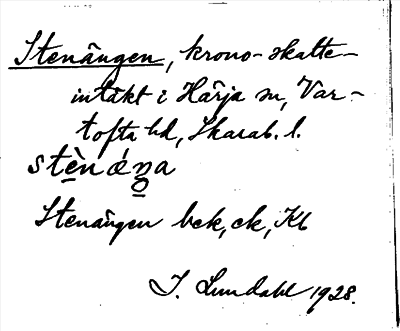 Stenängen, krono-skatte-
intäkt i Härja sn, Var-
tofta hd, Skarab. l.
stènáŋa
Stenängen bck, ck, Kb
I. Lundahl 1928.